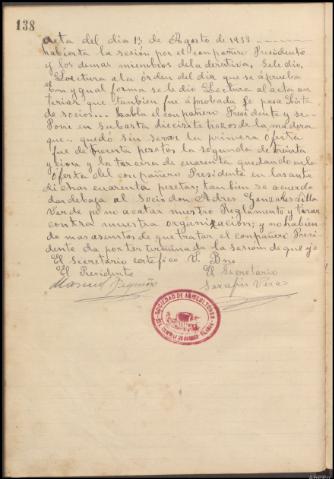 138
Acta del dia 13 de Agosto de 1933
habierta la sesión por el compañero Presidente
y los demas miembros de la derectiva, se le dio
Lectura a la órden del dia que se áprueba
con ygual forma se le dio Lectura al acta an
teriar que tambien fue áprobada se paso Lista
de socios... habla el compañero Presidente y se
Pone en subasta dieciseis trozos de madera
que quedó sin serrar la primera oferta
fue de treinta pesetas la segunda de treinta
y cinco y la tercera de cuarenta quedando en la
oferta del compañero Presidente en las ante
dichas cuarenta pesetas; tambien se acuerda
dar debaja al Socio don Adres Gonzales
Verde por no acatar nuestro Reglamento y tirar
contra nuestra organización; y no habien
do mas asuntos de que tratar el compañero Presi
dente da por terminada la Sesion de que yo
El Secretario certifico V. Bno
El Presidente El Secretario
Manuel Serafin
SOCIEDAD DE AGRICULTORES